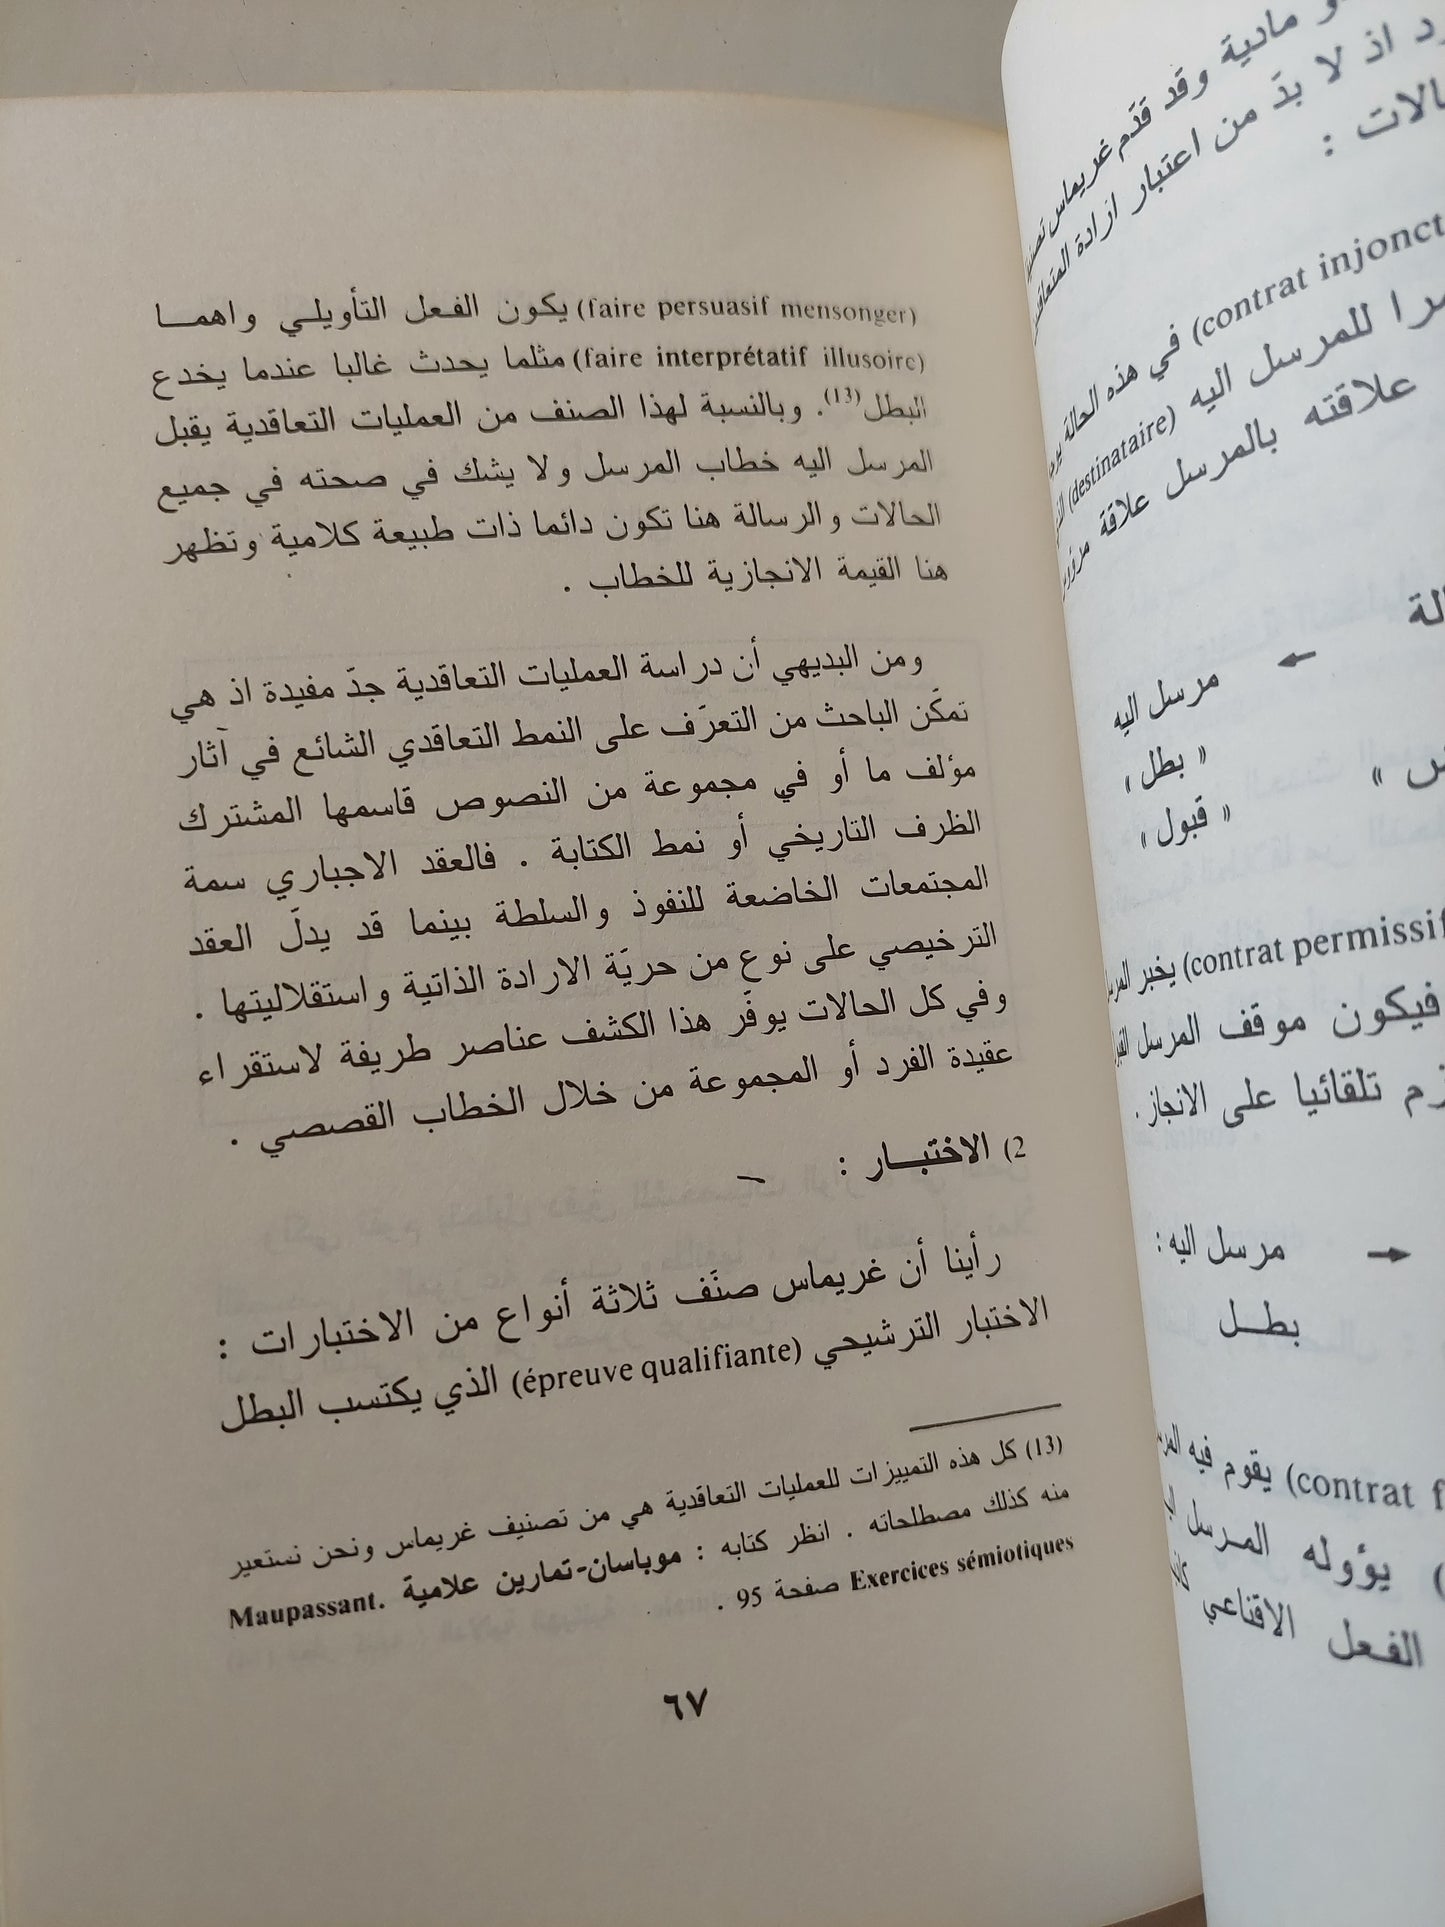 و مادية وقد قدّم غريماس
د اذ لا بدّ من اعتبار ارادة
الات :
(contrat injonct في هذه الحالة
مرا للمرسل اليه (destinataire)
علاقته بالمرسل علاقة
الة
← مرسل اليه
« بطل »
« قبول »
(contrat permissif يخبر
فيكون موقف المرسل
تلقائيا على الانجاز .
→ مرسل اليه :
بطـل
(contrat f يقوم فيه
يؤوله المـرسل
الفعل الاقناعي
(faire persuasif mensonger) يكون الفـعل التأويلـي واهمـا
(faire interprétatif illusoire) مثلما يحدث غالبا عندما يخدع
البطل(13). وبالنسبة لهذا الصنف من العمليات التعاقدية يقبل
المرسل اليه خطاب المرسل ولا يشك في صحته في جميع
الحالات والرسالة هنا تكون دائما ذات طبيعة كلامية وتظهر
هنا القيمة الانجازية للخطاب .
ومن البديهي أن دراسة العمليات التعاقدية جدّ مفيدة اذ هي
تمكّن الباحث من التعرّف على النمط التعاقدي الشائع في آثار
مؤلف ما أو في مجموعة من النصوص قاسمها المشترك
الظرف التاريخي أو نمط الكتابة . فالعقد الاجباري سمة
المجتمعات الخاضعة للنفوذ والسلطة بينما قد يدلّ العقد
الترخيصي على نوع من حريّة الارادة الذاتية واستقلاليتها .
وفي كل الحالات يوفّر هذا الكشف عناصر طريفة لاستقراء
عقيدة الفرد أو المجموعة من خلال الخطاب القصصي .
2) الاختبـــار :
رأينا أن غريماس صنّف ثلاثة أنواع من الاختبارات :
الاختبار الترشيحي (épreuve qualifiante) الذي يكتسب البطل
(13) كل هذه التمييزات للعمليات التعاقدية هي من تصنيف غريماس ونحن نستعير
منه كذلك مصطلحاته . انظر كتابه : موباسان-تمارين علامية Maupassant.
Exercices sémiotiques صفحة 95 .
٦٧